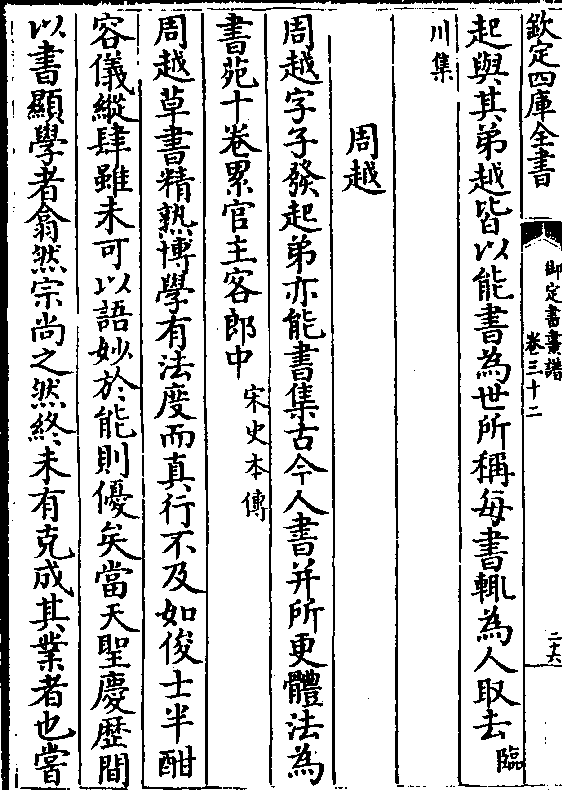 欽定四庫全書
御定書畫譜
卷三十二
二十六
起與其弟越皆以能書為世所稱每書輒為人取去臨
川集
周越
周越字子發起弟亦能書集古今人書并所更體法為
書苑十卷累官主客郎中宋史本傳
周越草書精熟博學有法度而真行不及如俊士半酣
容儀縱肆雖未可以語妙於能則優矣當天聖慶歴間
以書顯學者翕然宗尚之然終未有克成其業者也嘗